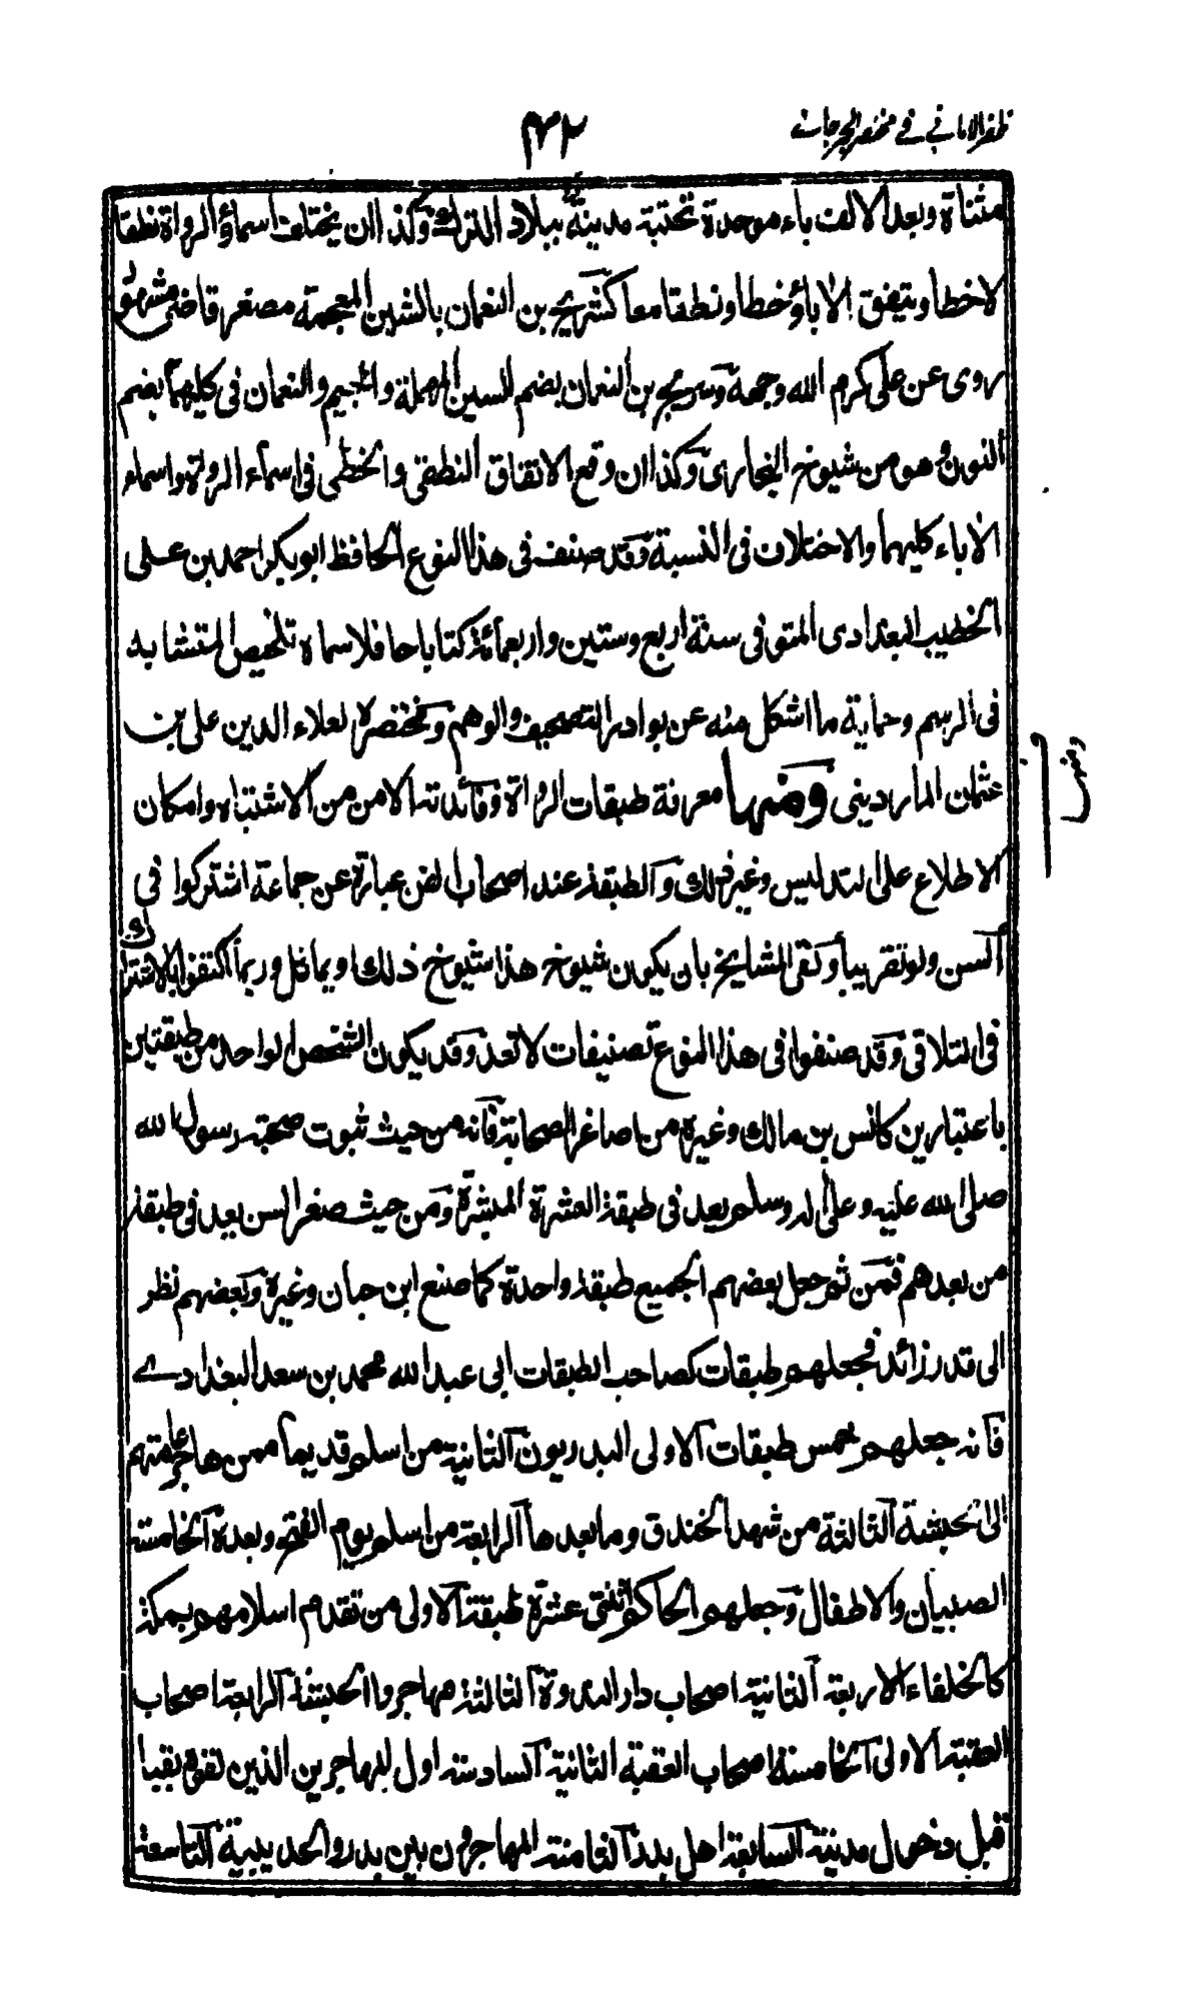 ظفر الامانی فی مختصر الجرجانی
٣٤٢
مثناة وبعد الالف باء موحدة تحتية مدينة ببلاد الترك وكذا ان يختلف اسماؤ الرواة نطقا
لا خطا ويتفق الاباؤ خطا ونطقا معا كشريح بن النعمان بالشين المعجمة مصغر قاضى مشهور
روى عن على كرم الله وجهه وسريج بن النعمان بضم السين المهملة والجيم والنعمان فى كليهما بضم
النون وهو من شيوخ البخارى وكذا ان وقع الاتفاق النطقى والخطى فى اسماء الرواة واسماء
الاباء كليهما والاختلاف فى النسبة وقد صنف فى هذا النوع الحافظ ابو بكر احمد بن على
الخطيب البغدادى المتوفى سنة اربع وستين واربعمائة كتابا حافلا سماه تلخيص المتشابه
فى الرسم وحماية ما اشكل منه عن بوادر التصحيف والوهم ومختصره لعلاء الدين على بن
عثمان الماردينى ومنها معرفة طبقات الرواة وفائدته الامن من الاشتباه وامكان
الاطلاع على التدليس وغير ذلك والطبقة عند اصحاب الفن عبارة عن جماعة اشتركوا فى
السن ولو تقريبا ولقى المشايخ بان يكون شيوخ هذا شيوخ ذلك او يماثل وربما اكتفوا بالاشتراك
فى التلاقى وقد صنفوا فى هذا النوع تصنيفات لا تعد وقد يكون الشخص الواحد من طبقتين
باعتبارين كانس بن مالك وغيره من اصاغر الصحابة فانه من حيث ثبوت صحبته رسول الله
صلى الله عليه وعلى اله وسلم يعد فى طبقة العشرة المبشرة ومن حيث صغر السن يعد فى طبقة
من بعدهم فمن ثم جعل بعضهم الجميع طبقة واحدة كما صنع ابن حبان وغيره وبعضهم نظر
الى قدر زائد فجعلهم طبقات كصاحب الطبقات ابى عبد الله محمد بن سعد البغدادے
فانه جعلهم خمس طبقات الاولى البدريون الثانية من اسلم قديما ممن هاجر عامتهم
الى الحبشة الثالثة من شهد الخندق وما بعدها الرابعة من اسلم يوم الفتح وبعده الخامسة
الصبيان والاطفال وجعلهم الحاكم اثنتى عشرة طبقة الاولى من تقدم اسلامهم بمكة
كالخلفاء الاربعة الثانية اصحاب دار الندوة الثالثة مهاجروا الحبشة الرابعة اصحاب
العقبة الاولى الخامسة اصحاب العقبة الثانية السادسة اول المهاجرين الذين لقوه بقبا
قبل دخول مدينة السابعة اهل بدر الثامنة المهاجرون بين بدر والحديبية التاسعة